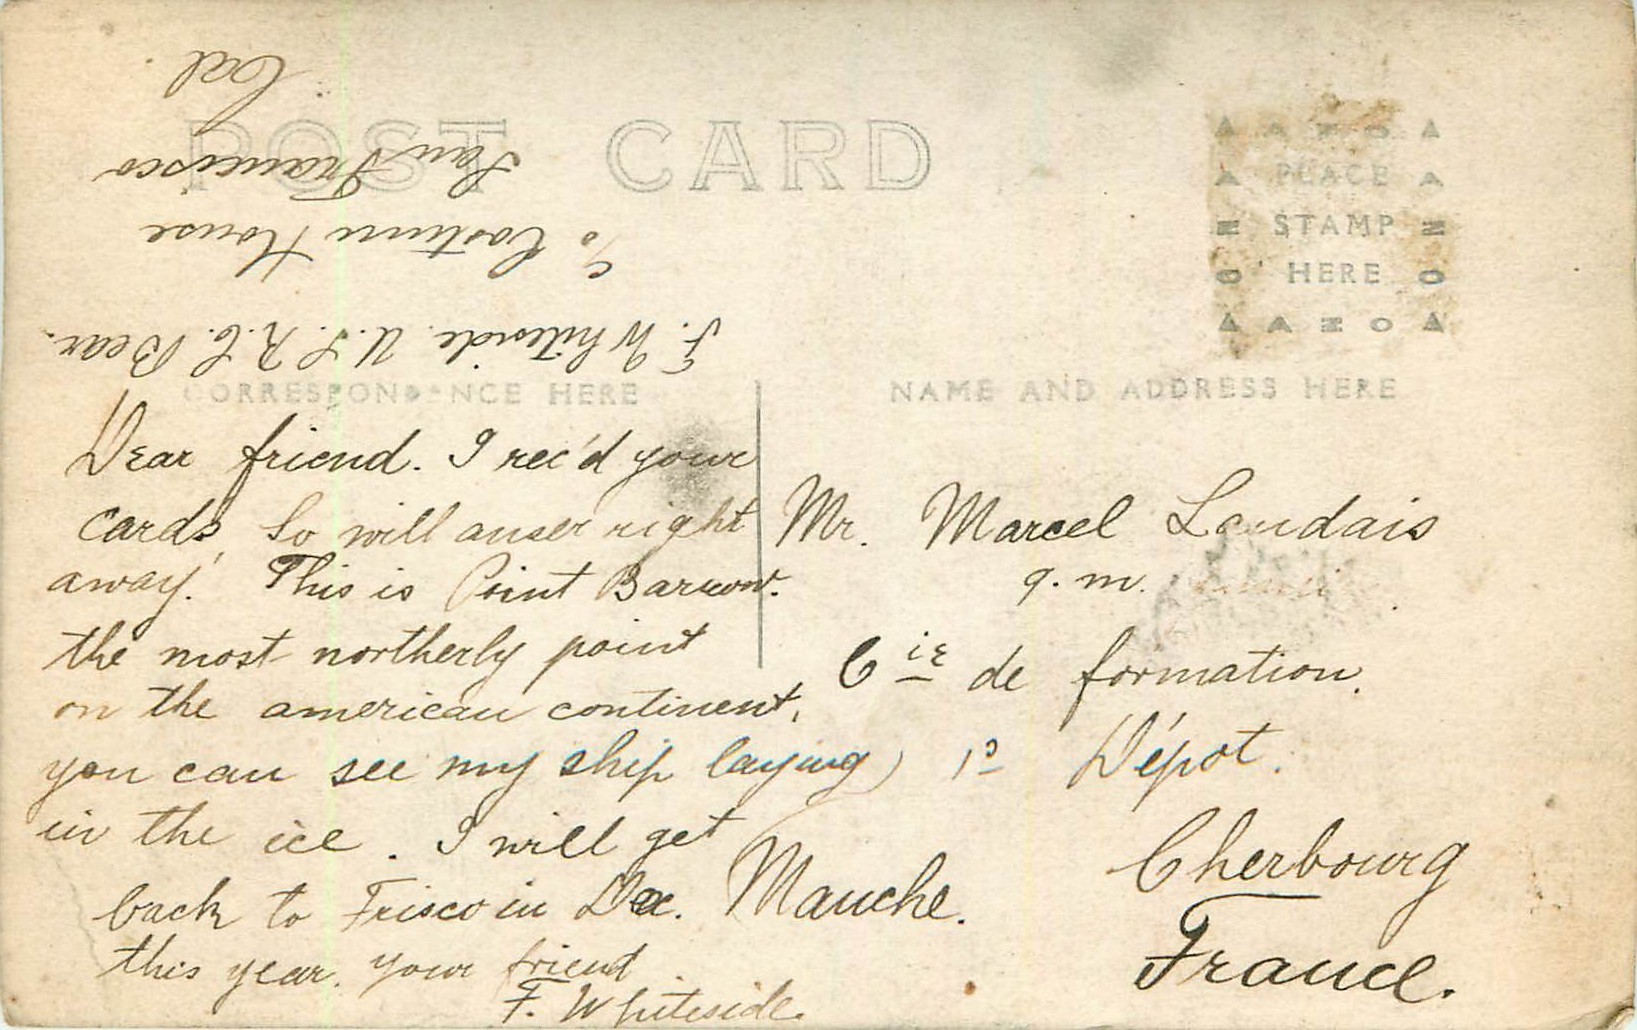 POST CARD
AZO
PLACE
STAMP
HERE
AZO
CORRESPONDENCE HERE
NAME AND ADDRESS HERE
F. Whiteside U.S.R.C. Bear.
c/o Costum House
San Francisco
Cal.
Dear friend. I rec'd your
cards, So will anser right
away. This is Point Barrow.
the most northerly point
on the american continent,
you can see my ship laying
in the ice. I will get
back to Frisco in Dec.
this year. your friend
F. Whiteside.
Mr. Marcel Landais
q.m.
Cie de formation.
1o Dépot.
Cherbourg
Manche.
France.